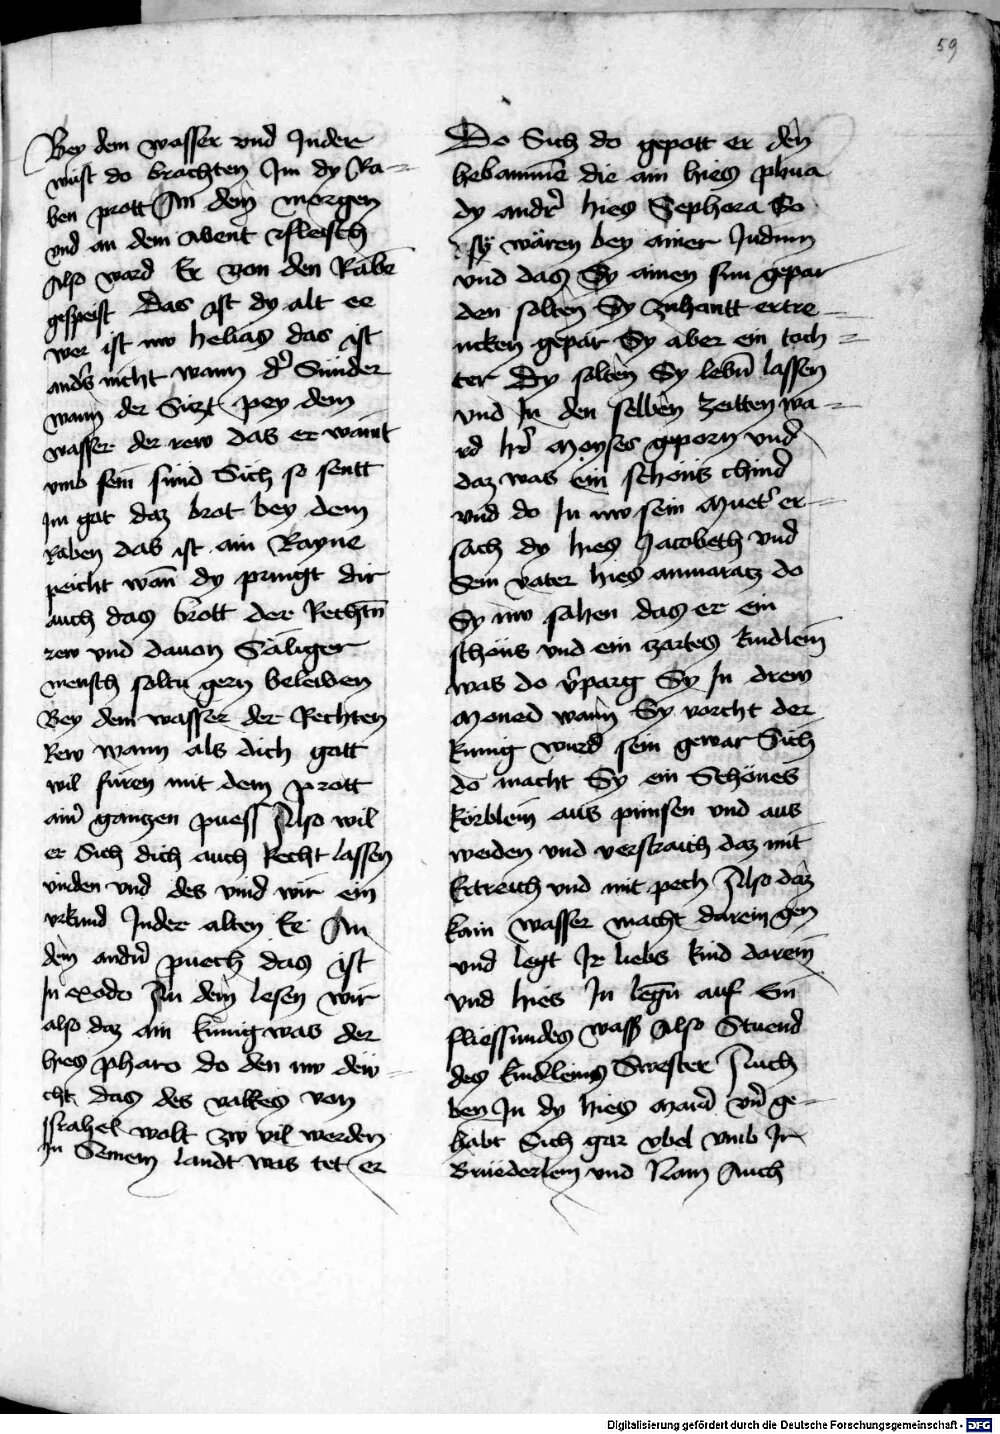 59
Bey dem wasser vnd Indere
wüst do brachten Im dy Ra-
ben prott An dem morgen
vnd an dem abent vleisch
Also ward Er von den Rabē
gespeist Das ist dy alt ee
wer ist nw helias das ist
anders nicht wann dˢ Sünder
wann der Sitzt pey dem
wasser der rew das er waint
vmb sein sünd Sich so sentt
Im got daz brot bey dem
Raben das ist ain Rayne
peicht wan̄ dy pringt dir
auch das brott der Rechtn̄
rew vnd dauon Säliger
mensch soltu gern beleiben
Bey dem wasser der Rechten
Rew wann als dich gott
wil füren mit dem prott
ainˢ gantzen puess Also wil
er Sich dich auch Recht lassen
vinden vnd des vind wir ein
vrkund Inder alten Ee An
dem andˢn puech das ist
In exodo An dem lesen wir
also daz ain künig was der
hies pharo do den nw dew-
cht das des volkes von
israhel wolt zw vil werden
In Seinem landt was tet er
Do Sich do gepott er den
hebammē die ain hies phua
dy andˢ hies Sephora So
sy wären bey ainer Judinn
vnd das Sy ainen sun gepar
den solten Sy zuhantt ertre-
ncken gepär Sy aber ein toch-
ter Dy solten Sy lebn̄ lassen
vnd In den selben zeitten wa-
rd hˢ Moyses geporn vnd
daz was ein schöns chind
vnd do In nw sein Muetˢ er-
sach dy hies Jacobeth vnd
Sein vater hies amaratz do
Sy nw sahen das er ein
schöns vnd ein zartes kindlein
was do vˢparg Sy In drew
Moned wann Sy vorcht der
künig wurd sein gewar Sich
do macht Sy ein Schönes
körblein aus pimsen vnd aus
weiden vnd verstraich daz mit
Ertreich vnd mit pech Also daz
kain wasser macht darein gen
vnd legt Ir liebs kind darein
vnd hies In legn̄ auf Ein
fliessundes wasˢ Also Stuend
des kindleins Swester Nach
ben In dy hies mariˢ vn̄ ge-
habt Sich gar vbel vmb Ir
Brüederlein vnd Nam Auch
Digitalisierung gefördert durch die Deutsche Forschungsgemeinschaft - DFG